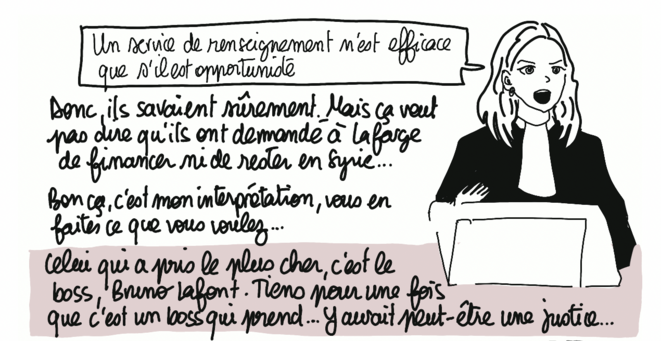 Un service de renseignement n'est efficace
que s'il est opportuniste
Donc, ils savaient sûrement. Mais ça veut
pas dire qu'ils ont demandé à Lafarge
de financer ni de rester en Syrie...
Bon ça, c'est mon interprétation, vous en
faites ce que vous voulez...
Celui qui a pris le plus cher, c'est le
boss, Bruno Lafont. Tiens pour une fois
que c'est un boss qui prend... Y aurait peut-être une justice...